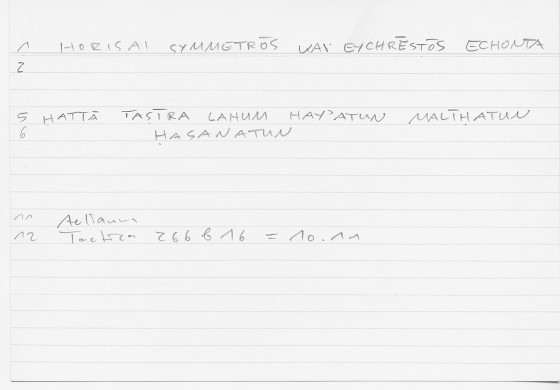 1 HORISAI SYMMETRŌS KAI EYCHRĒSTŌS ECHONTA
2
5 ḤATTĀ TAṢĪRA LAHUM HAYʾATUN MALĪḤATUN
6 ḤASANATUN
11 Aelianus
12 Tactica 266 b 16 = 10.11